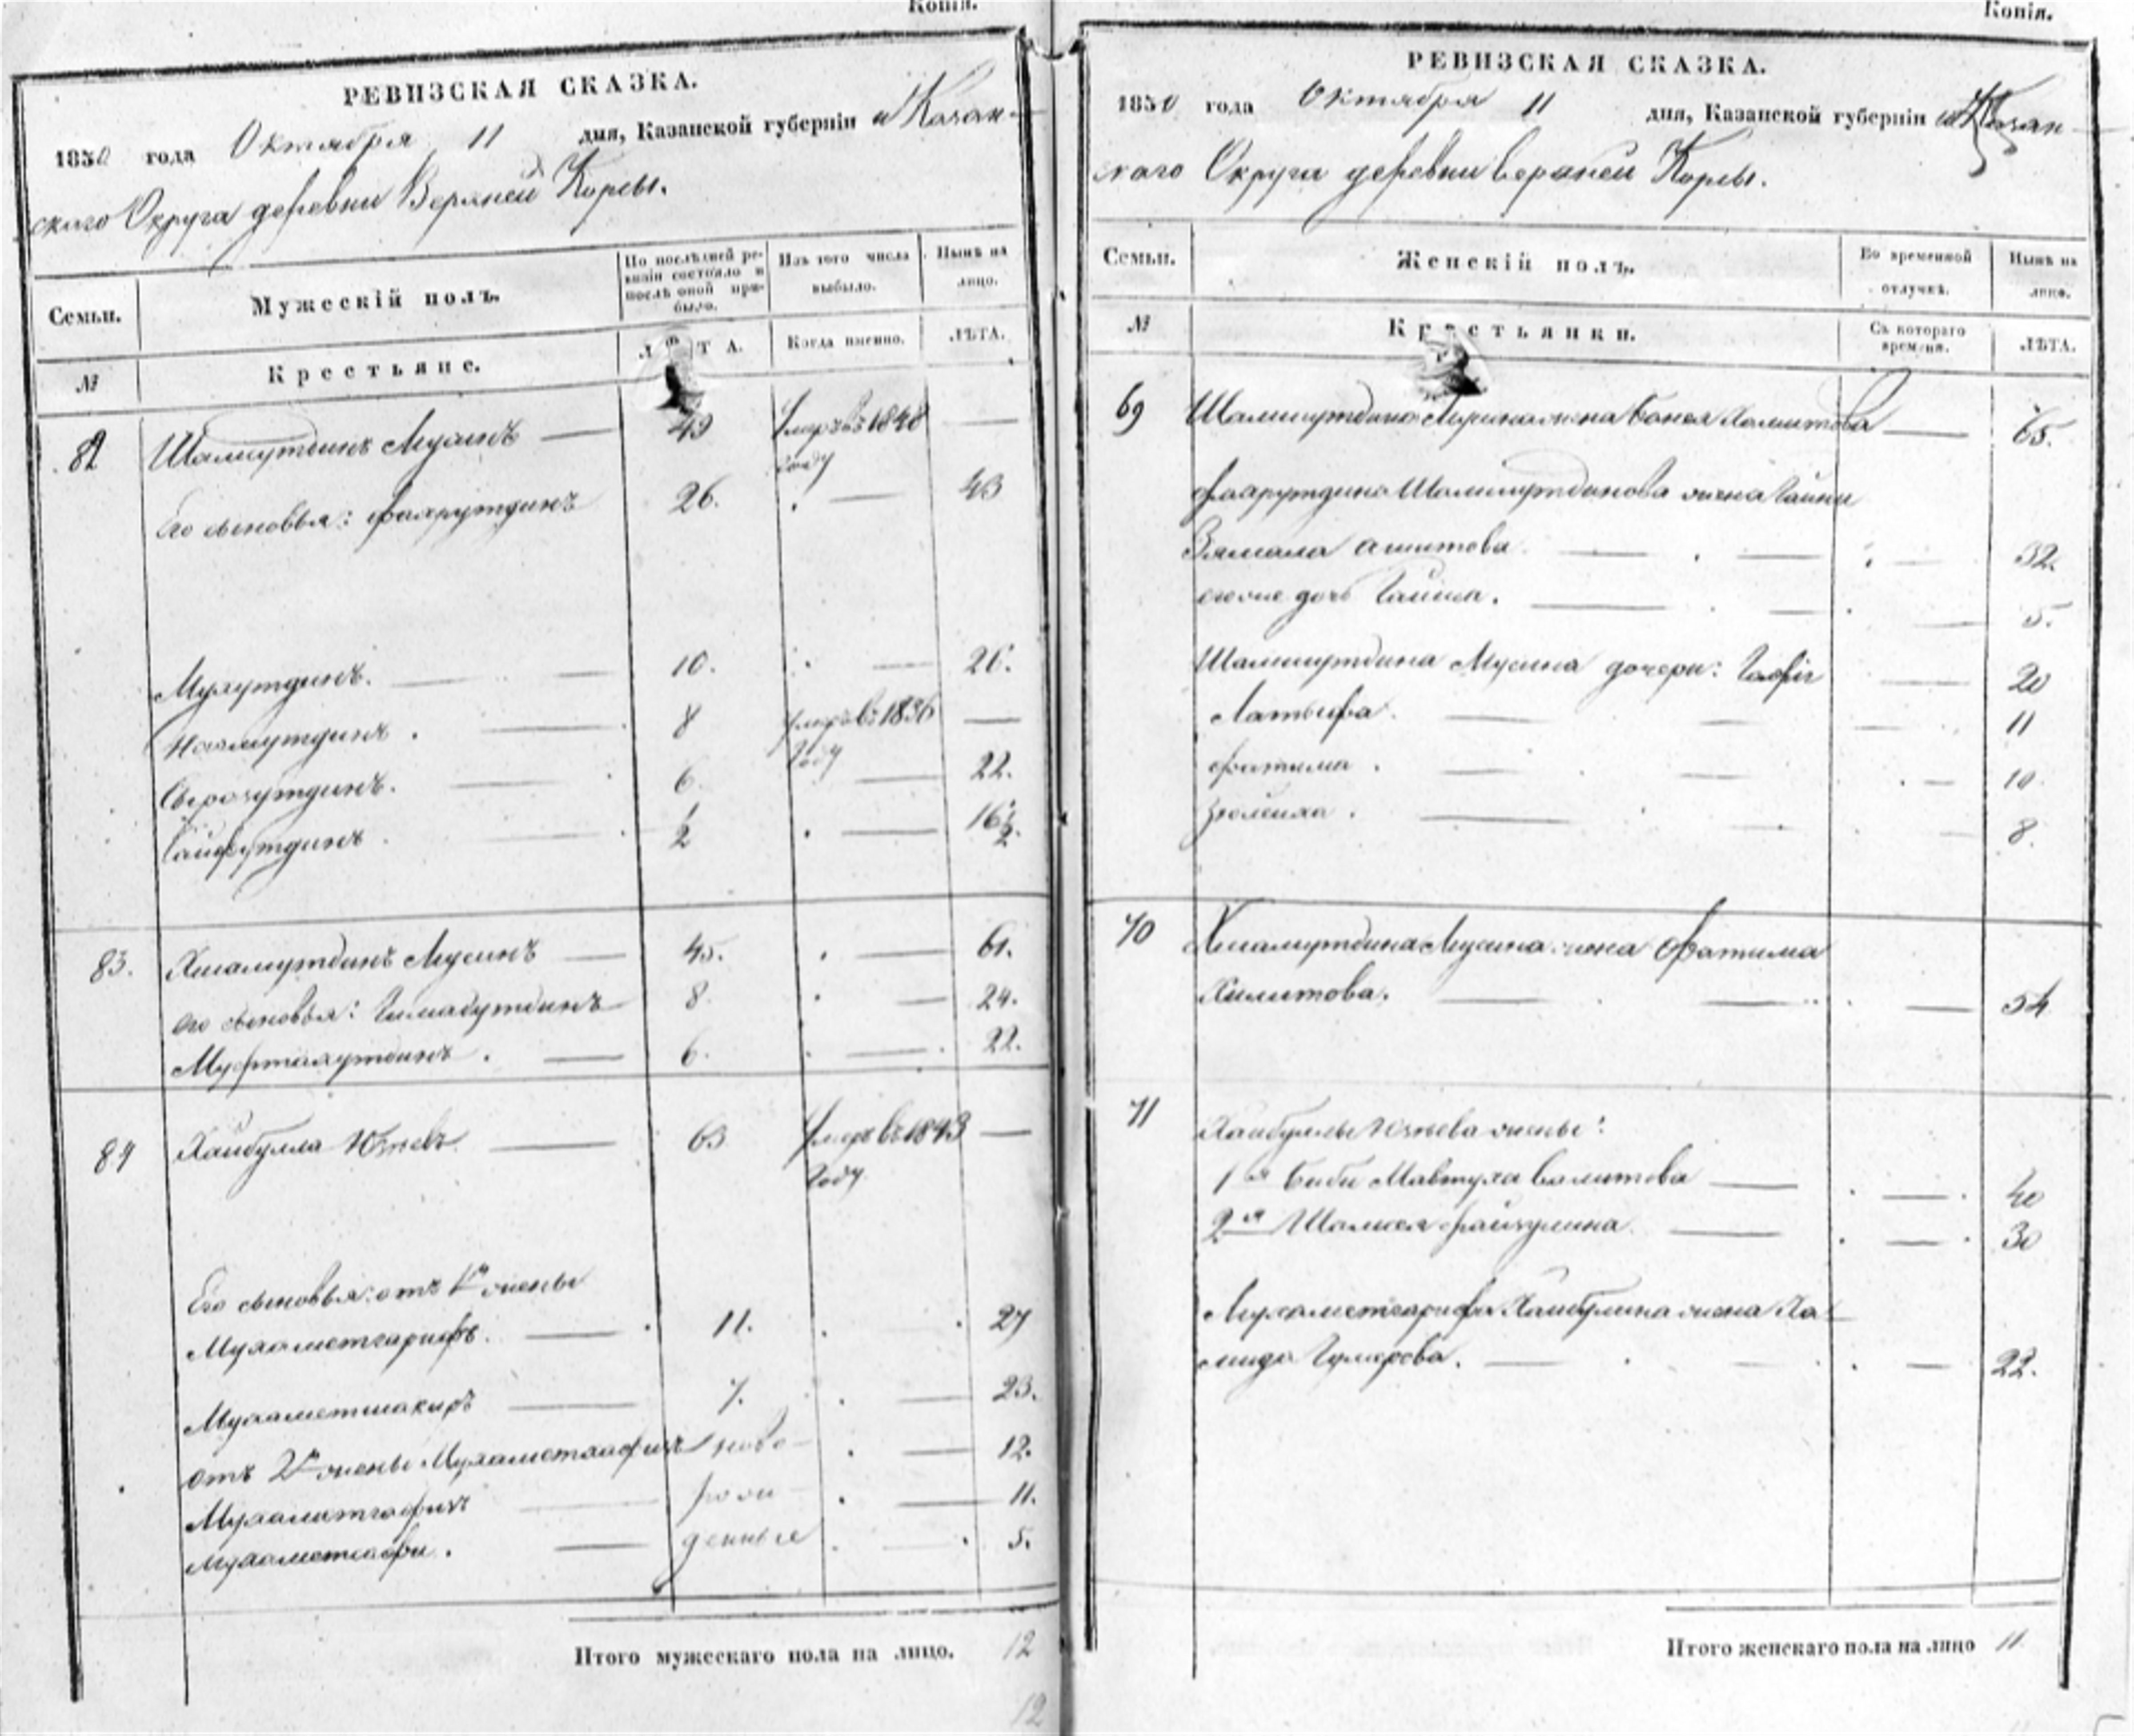 Копія.
РЕВИЗСКАЯ СКАЗКА.
1850 года Октября 11 дня, Казанской губерніи и Казан-
скаго Округа деревни Верхней Корсы.
Семьи.
Мужескій полъ.
По послѣдней ре-
визіи состояло и
послѣ оной при-
было.
Изъ того числа
выбыло.
Нынѣ на
лицо.
№
Крестьяне.
ЛѢТА.
Когда именно.
ЛѢТА.
82 Шамсутдинъ Мусинъ 49 Умеръ въ 1848 году —
Его сыновья: Фахрутдинъ 26. — 43
Мухутдинъ. 10. — 26.
8 умеръ въ 1836 году —
Сирозутдинъ. 6. — 22.
Сайфутдинъ ½ — 16½.
83. Хисамутдинъ Мусинъ 45. — 61.
его сыновья: Гимадутдинъ 8. — 24.
Мифтахутдинъ. 6. — 22.
84 Хайбулла 63 Умеръ въ 1843 году —
Его сыновья: отъ 1й жены
Мухаметгарифъ. 11. 27
Мухаметшакиръ 7. — 23.
отъ 2й жены ново- — 12.
рож- — 11.
денные 5.
Итого мужескаго пола на лицо. 12
12
Копія.
РЕВИЗСКАЯ СКАЗКА.
1850 года Октября 11 дня, Казанской губерніи и Казан-
скаго Округа деревни Верхней Корсы.
Семьи.
Женскій полъ.
Во временной
отлучкѣ.
Нынѣ на
лицо.
№
Крестьянки.
Съ котораго
времени.
ЛѢТА.
69 Шамсутдина Мусина жена Хамитова — 65.
Фахрутдина Шамсутдинова жена Гайни
Зямала — 32.
его же дочь — 5.
Шамсутдина Мусина дочери: — 20
Латыфа. 11
Фатима. — 10.
Зюлейха. — 8.
70 Хисамутдина Мусина жена Фатима
Халитова. — 54
71 Хайбуллы жены:
1я Биби Мавтуха Валитова — 40
2я Шамсея Файзулина. — 30
Мухаметгарифа Хайбулина жена Ха-
мида Гумерова. — 22.
Итого женскаго пола на лицо 11